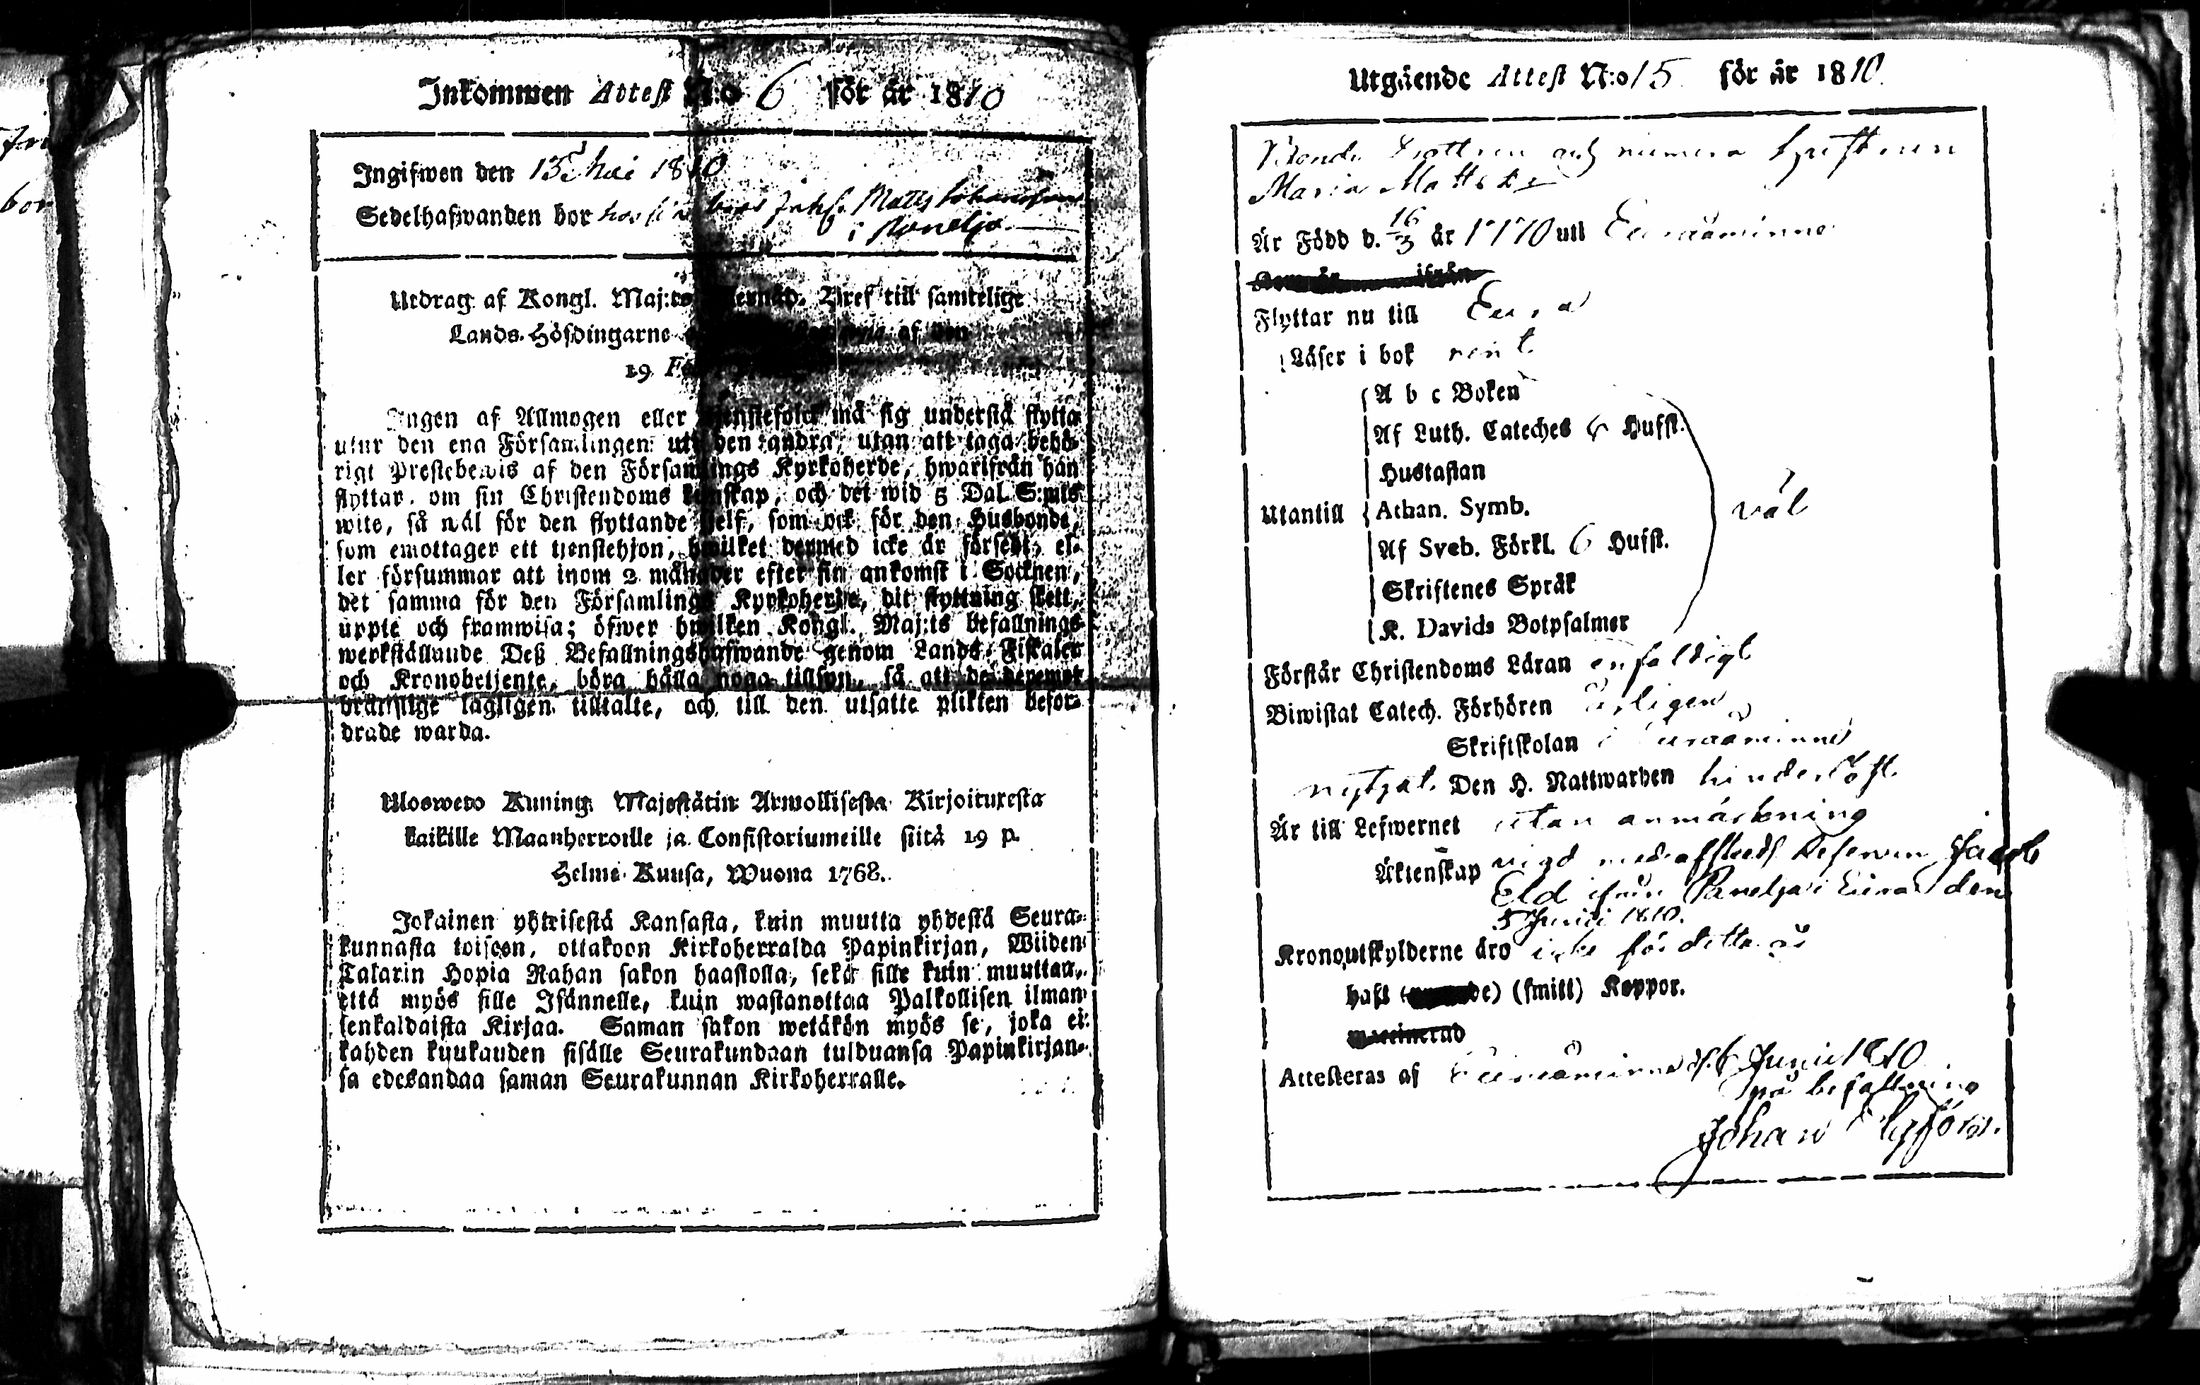 Inkommen Attest N:o 6 för år 1810
Ingifwen den 13 Mai 1810
Sedelhafwanden bor hos Matts Johansson
i Paneljo
Utdrag af Kongl. Maj:ts Bref till samtelige
Lands-Höfdingarne af den
19
Ingen af Allmogen eller må sig understå flytta
utur den ena Församlingen uti den andra, utan att taga behö-
rigt Prestebewis af den Församlings Kyrkoherde, hwarifrån han
flyttar, om sin Christendoms kunskap, och det wid 5 Dal. S:mts
wite, så wäl för den flyttande sjelf, som ock för den Husbonde,
som emottager ett tjenstehjon, hwilket dermed icke är försedt, el-
ler försummar att inom 2 månader efter sin ankomst i Socknen,
det samma för den Församlings Kyrkoherde, dit flyttning skett,
uppte och framwisa; öfwer hwilken Kongl. Maj:ts befallnings
werkställande Deß Befallningshafwande genom Lands-Fiskaler
och Kronobetjente, böra hålla noga tillsyn, så att de deremot
bråttslige lagligen tilltalte, och till den utsatte plikten befor-
drade warda.
Ulosweto Kuning. Majestätin Armollisesta Kirjoituxesta
kaikille Maanherroille ja Consistoriumeille siitä 19 p.
Helme-Kuusa, Wuona 1768.
Jokainen yhteisestä Kansasta, kuin muutta yhdestä Seura-
kunnasta toiseen, ottakoon Kirkoherralda Papinkirjan, Wiiden
Talarin Hopia Rahan sakon haastolla, sekä sille kuin muuttaa,
että myös sille Isännelle, kuin wastanottaa Palkollisen ilman
senkaldaista Kirjaa. Saman sakon wetäkön myös se, joka ei
kahden kuukauden sisälle Seurakundaan tulduansa Papinkirjan-
sa edesandaa saman Seurakunnan Kirkoherralle.
Utgående Attest N:o 15 för år 1810
Bonde Dottren och numera hustrun
Maria Mattsdr
Är Född d. 16/3 år 1770 uti Euraåminne
Flyttar nu till Eura
Läser i bok rent
A b c Boken
Af Luth. Cateches 6 Hufst.
Hustaflan
Utantill Athan. Symb. väl
Af Sveb. Förkl. 6 Hufst.
Skriftenes Språk
K. Davids Botpsalmer
Förstår Christendoms Läran enfaldigt
Biwistat Catech. Förhören årligen
Skriftskolan i Euraåminne
nytjat Den H. Nattwarden hinderlöst
Är till Lefwernet utan anmärkning
Äktenskap vigd med Jacob
Eld ifrån Panelja i Eura den
5 Junii 1810.
Kronoutskylderne äro icke för detta år
haft (smitt) Koppor.
Attesteras af Euraåminne d. 6 Junii 1810
på befallning
Johan